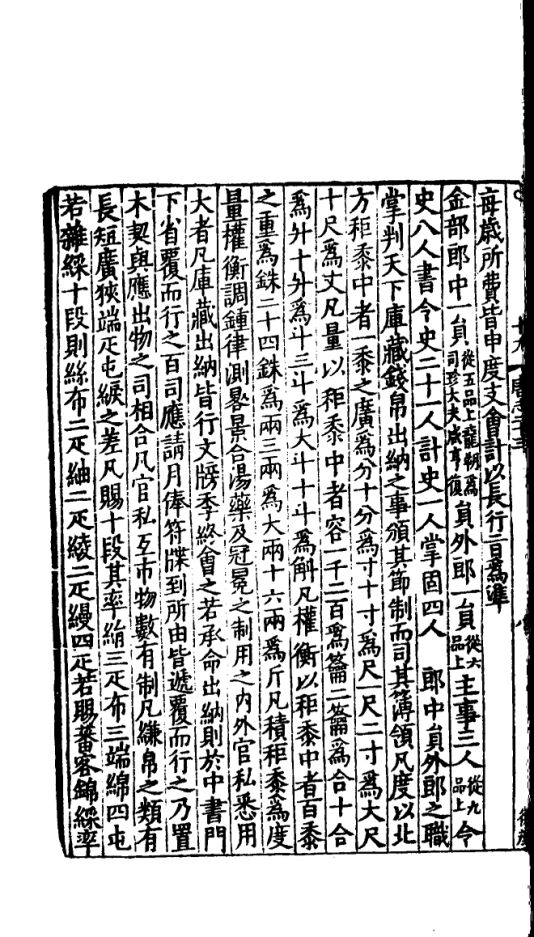 每歲所費皆申度支會計以長行旨爲準
金部郎中一員從五品上龍朔爲司珍大夫咸亨復員外郎一員從六品上主事三人從九品上令
史八人書令史二十一人計史一人掌固四人　郎中員外郎之職
掌判天下庫藏錢帛出納之事頒其節制而司其簿領凡度以北
方秬黍中者一黍之廣爲分十分爲寸十寸爲尺一尺二寸爲大尺
十尺爲丈凡量以秬黍中者容一千二百爲籥二籥爲合十合
爲升十升爲斗三斗爲大斗十斗爲斛凡權衡以秬黍中者百黍
之重爲銖二十四銖爲兩三兩爲大兩十六兩爲斤凡積秬黍爲度
量權衡調鍾律測晷景合湯藥及冠冕之制用之内外官私悉用
大者凡庫藏出納皆行文牓季終會之若承命出納則於中書門
下省覆而行之百司應請月俸符牒到所由皆遞覆而行之乃置
木契與應出物之司相合凡官私互市物數有制凡縑帛之類有
長短廣狹端疋屯綟之差凡賜十段其率絹三疋布三端綿四屯
若雜綵十段則絲布二疋紬二疋綾二疋縵四疋若賜蕃客錦綵率